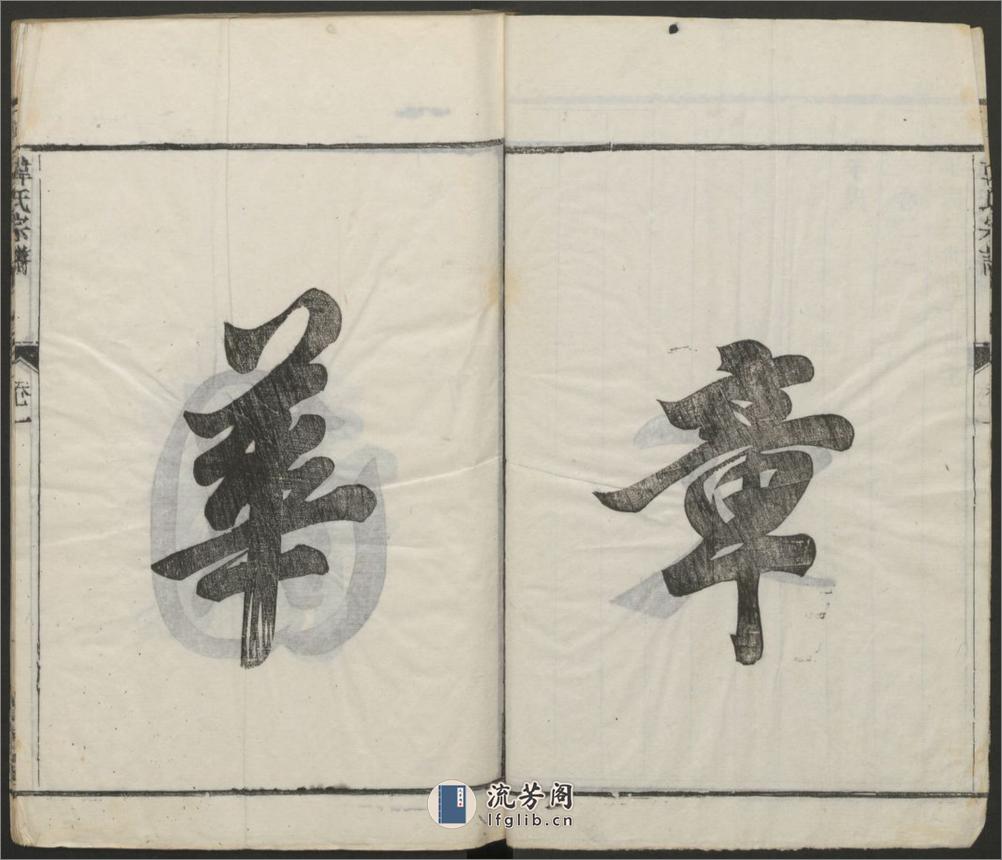 章
華
氏宗譜
卷一
流芳阁
lfglib.cn